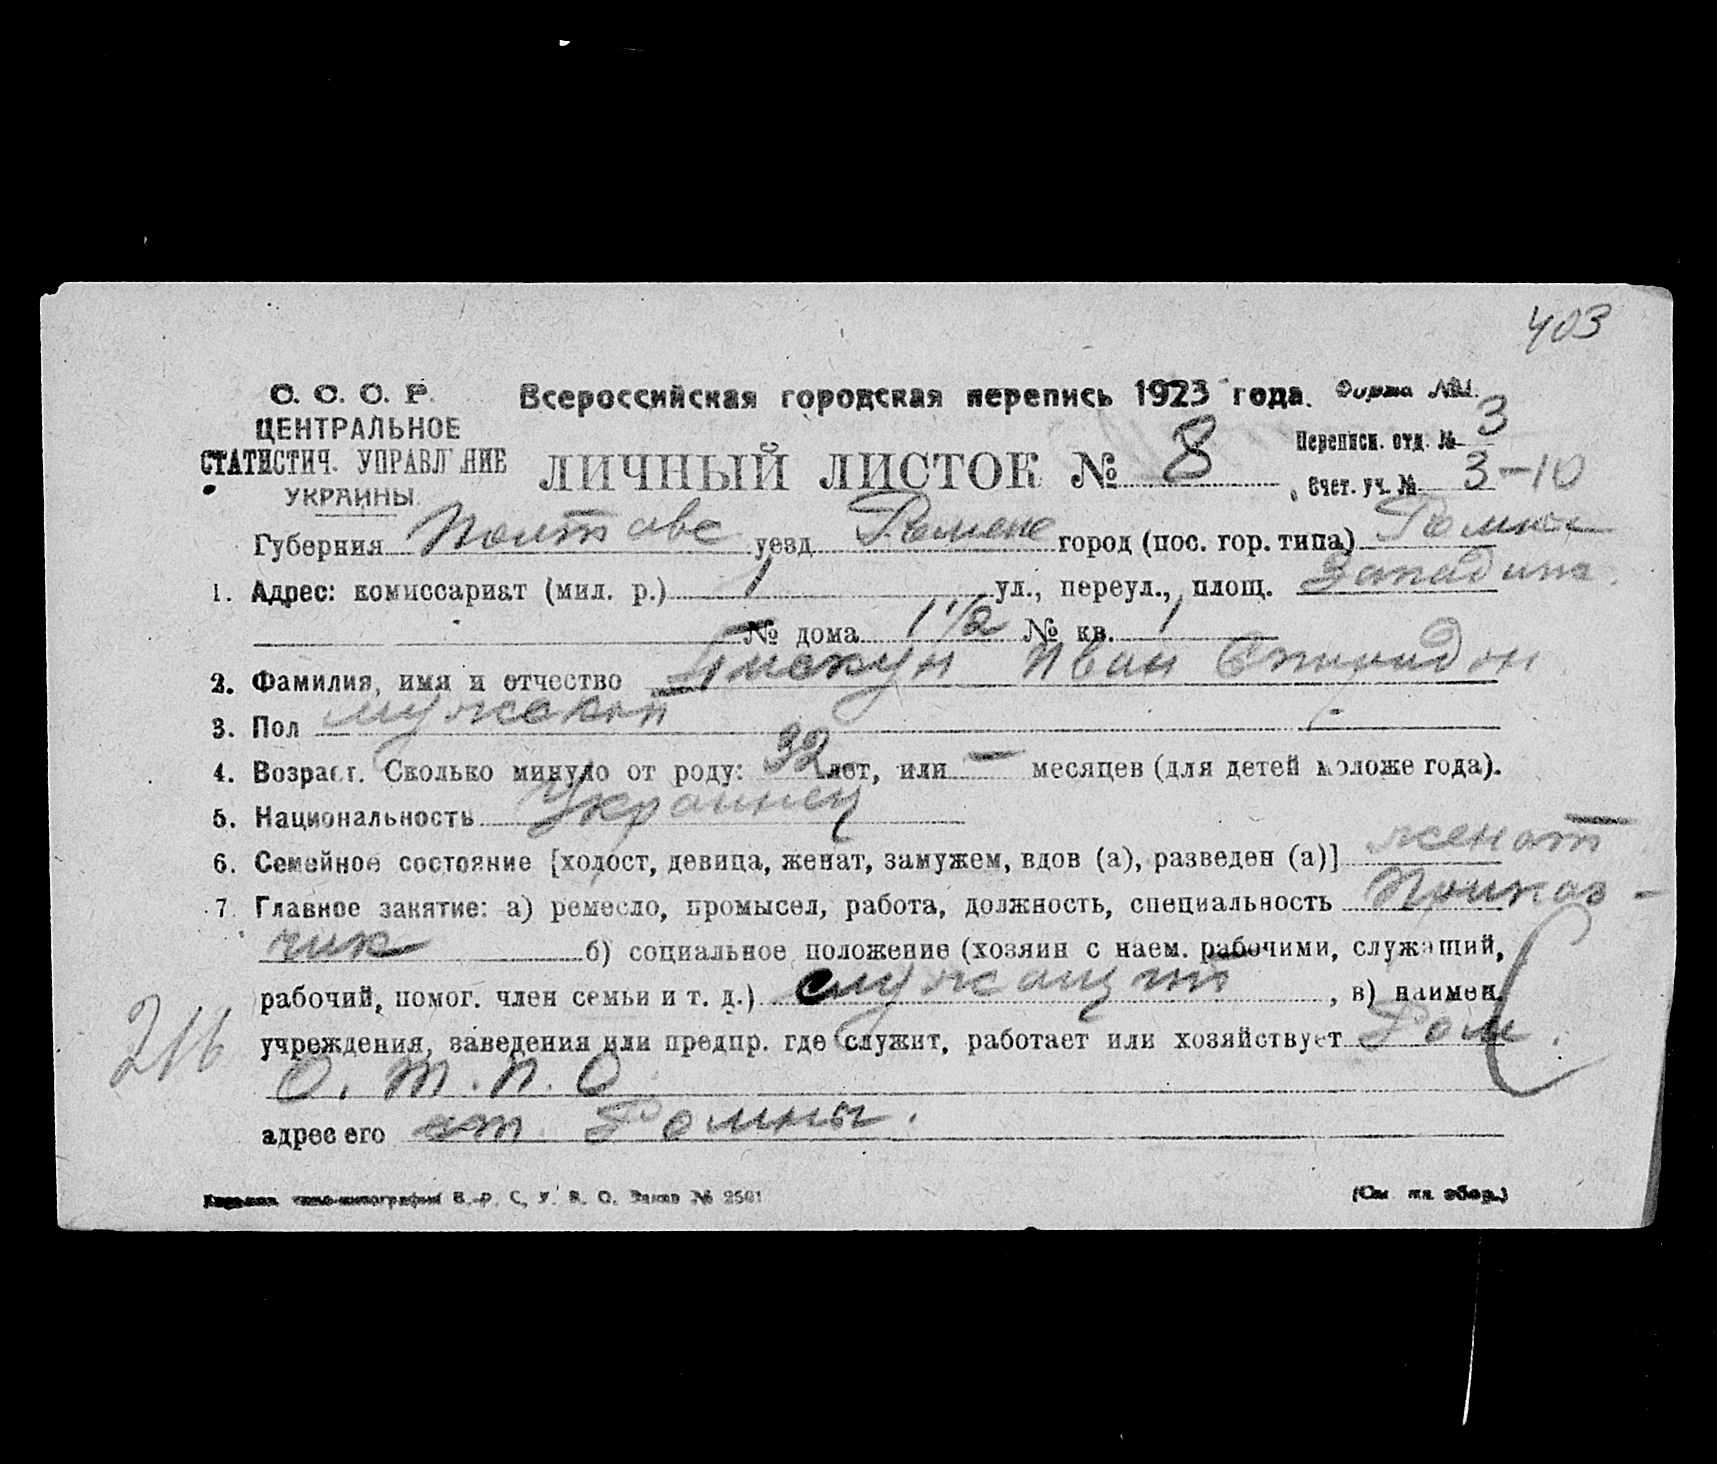 403
С. С. С. Р.
ЦЕНТРАЛЬНОЕ
СТАТИСТИЧ. УПРАВЛЕНИЕ
УКРАИНЫ.
Всероссийская городская перепись 1923 года. Форма №1.
ЛИЧНЫЙ ЛИСТОК № 8
Переписн. отд. № 3
Счет. уч. № 3-10
Губерния Полтавс уезд Роменс город (пос. гор. типа) Ромны
1. Адрес: комиссариат (мил. р.) 1 ул., переул., площ. Западин
№ дома 1 1/2 № кв. 1
2. Фамилия, имя и отчество Пискун Иван Спиридон
3. Пол мужской
4. Возраст. Сколько минуло от роду: 32 лет, или — месяцев (для детей моложе года).
5. Национальность Украинец
6. Семейное состояние [холост, девица, женат, замужем, вдов (а), разведен (а)] женат
7. Главное занятие: а) ремесло, промысел, работа, должность, специальность Приказ-
чик б) социальное положение (хозяин с наем. рабочими, служащий,
рабочий, помог. член семьи и т. д.) служащий, в) наимен.
216
учреждения, заведения или предпр. где служит, работает или хозяйствует Ром.
О. т. П. О
адрес его ст. Ромны.
типо-литография В. Р. С. У. Заказ № 2561
(См. на обор.)